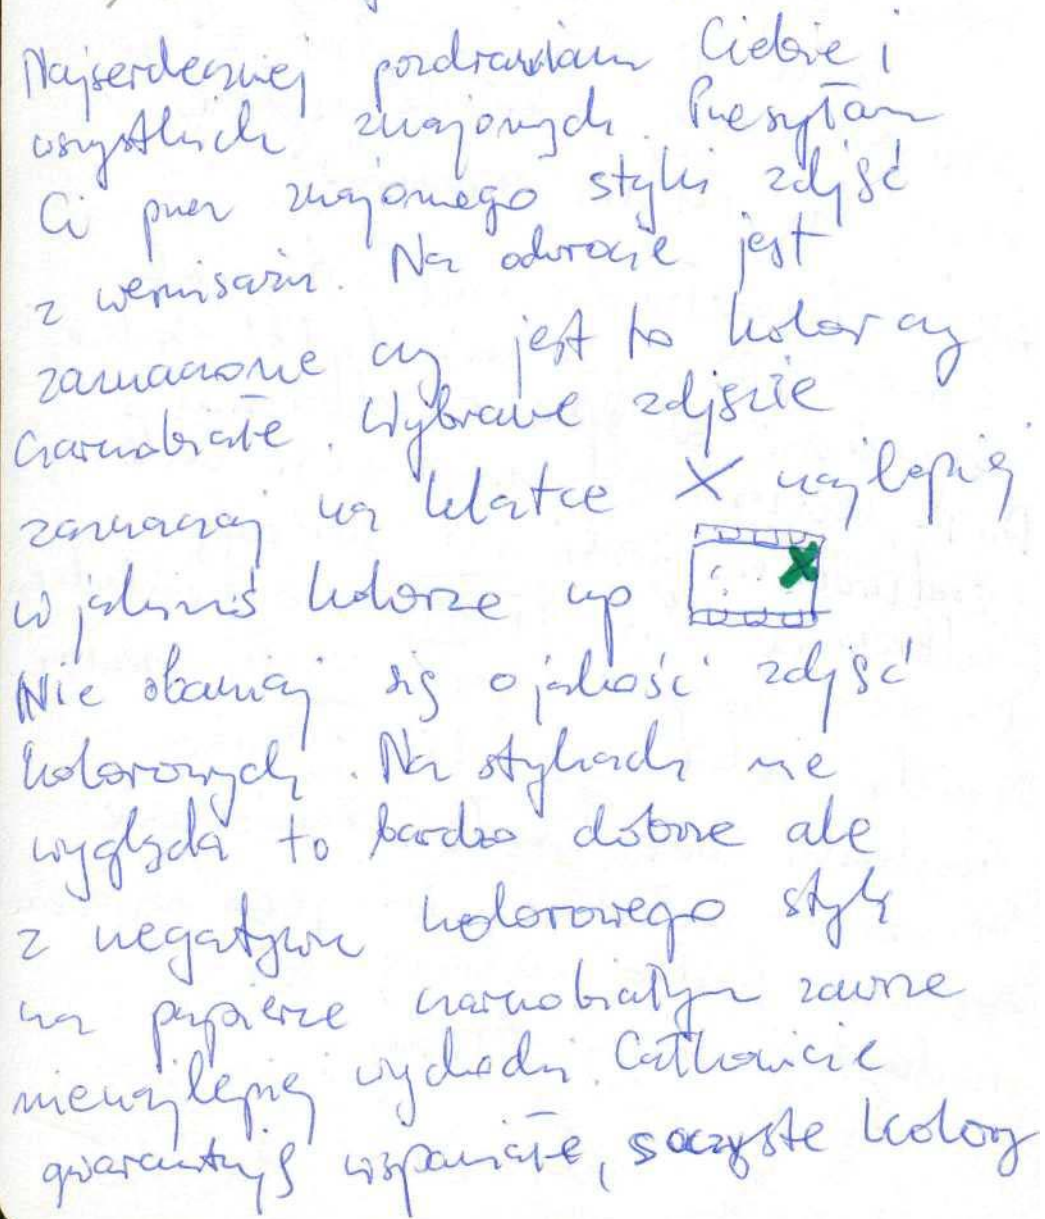 Najserdeczniej pozdrawiam Ciebie i
wszystkich znajomych. Przesyłam
Ci przez znajomego styki zdjęć
z wernisażu. Na odwrocie jest
zaznaczone czy jest to kolor czy
czarnobiałe. Wybrane zdjęcie
zaznaczaj na klatce X najlepiej
w jakimś kolorze np
Nie obawiaj się o jakość zdjęć
kolorowych. Na stykach nie
wygląda to bardzo dobrze ale
z negatywu kolorowego styk
na papierze czarnobiałym zawsze
nienajlepiej wychodzi. Całkowicie
gwarantuję wspaniałe, soczyste kolory